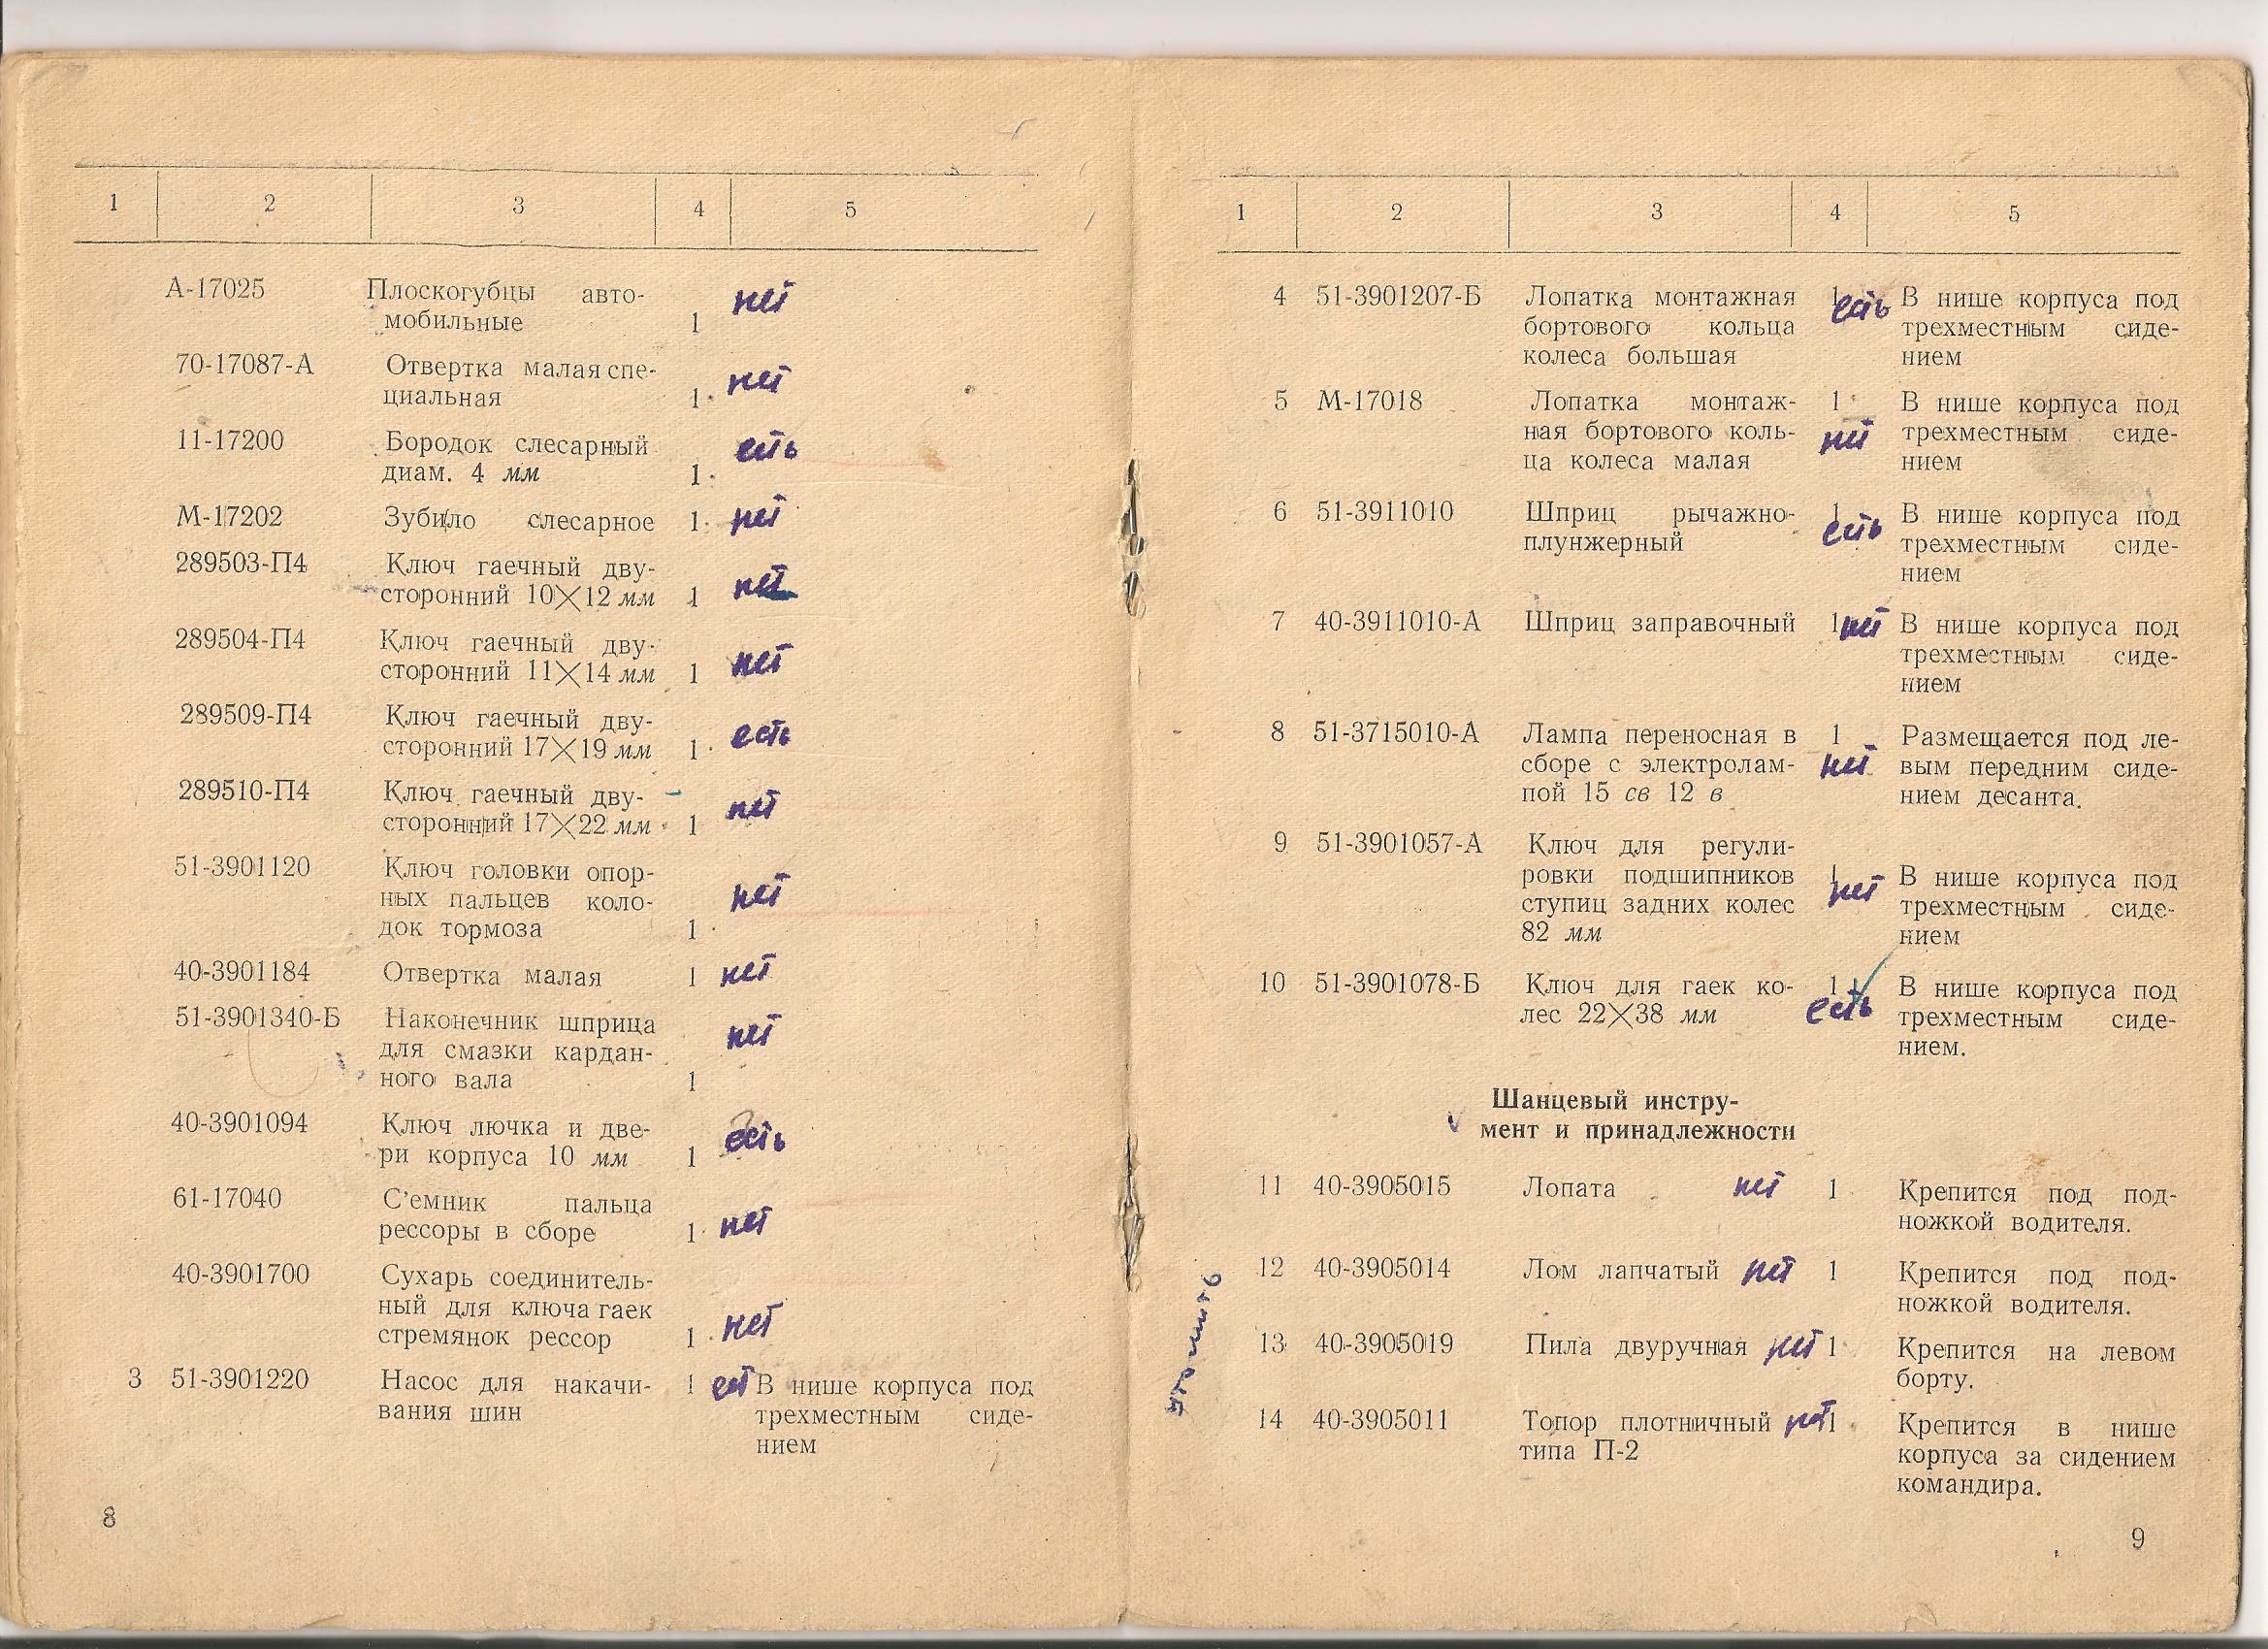 1 2 3 4 5
А-17025 Плоскогубцы авто- нет
мобильные 1
70-17087-А Отвертка малая спе- нет
циальная 1
11-17200 Бородок слесарный есть
диам. 4 мм 1
М-17202 Зубило слесарное 1 нет
289503-П4 Ключ гаечный дву-
сторонний 10×12 мм 1 нет
289504-П4 Ключ гаечный дву-
сторонний 11×14 мм 1 нет
289509-П4 Ключ гаечный дву-
сторонний 17×19 мм 1 есть
289510-П4 Ключ гаечный дву-
сторонний 17×22 мм 1 нет
51-3901120 Ключ головки опор-
ных пальцев коло- нет
док тормоза 1
40-3901184 Отвертка малая 1 нет
51-3901340-Б Наконечник шприца нет
для смазки кардан-
ного вала 1
40-3901094 Ключ лючка и две- есть
ри корпуса 10 мм 1
61-17040 С’емник пальца
рессоры в сборе 1 нет
40-3901700 Сухарь соединитель-
ный для ключа гаек
стремянок рессор 1 нет
3 51-3901220 Насос для накачи- 1 ест В нише корпуса под
вания шин трехместным сиде-
нием
8
1 2 3 4 5
4 51-3901207-Б Лопатка монтажная 1 есть В нише корпуса под
бортового кольца трехместным сиде-
колеса большая нием
5 М-17018 Лопатка монтаж- 1 В нише корпуса под
ная бортового коль- нет трехместным сиде-
ца колеса малая нием
6 51-3911010 Шприц рычажно- 1 есть В нише корпуса под
плунжерный трехместным сиде-
нием
7 40-3911010-А Шприц заправочный 1 нет В нише корпуса под
трехместным сиде-
нием
8 51-3715010-А Лампа переносная в 1 Размещается под ле-
сборе с электролам- нет вым передним сиде-
пой 15 св 12 в нием десанта.
9 51-3901057-А Ключ для регули-
ровки подшипников 1 нет В нише корпуса под
ступиц задних колес трехместным сиде-
82 мм нием
10 51-3901078-Б Ключ для гаек ко- 1 В нише корпуса под
лес 22×38 мм есть трехместным сиде-
нием.
Шанцевый инстру-
мент и принадлежности
11 40-3905015 Лопата нет 1 Крепится под под-
ножкой водителя.
12 40-3905014 Лом лапчатый нет 1 Крепится под под-
ножкой водителя.
13 40-3905019 Пила двуручная нет 1 Крепится на левом
борту.
14 40-3905011 Топор плотничный нет 1 Крепится в нише
типа П-2 корпуса за сидением
командира.
9